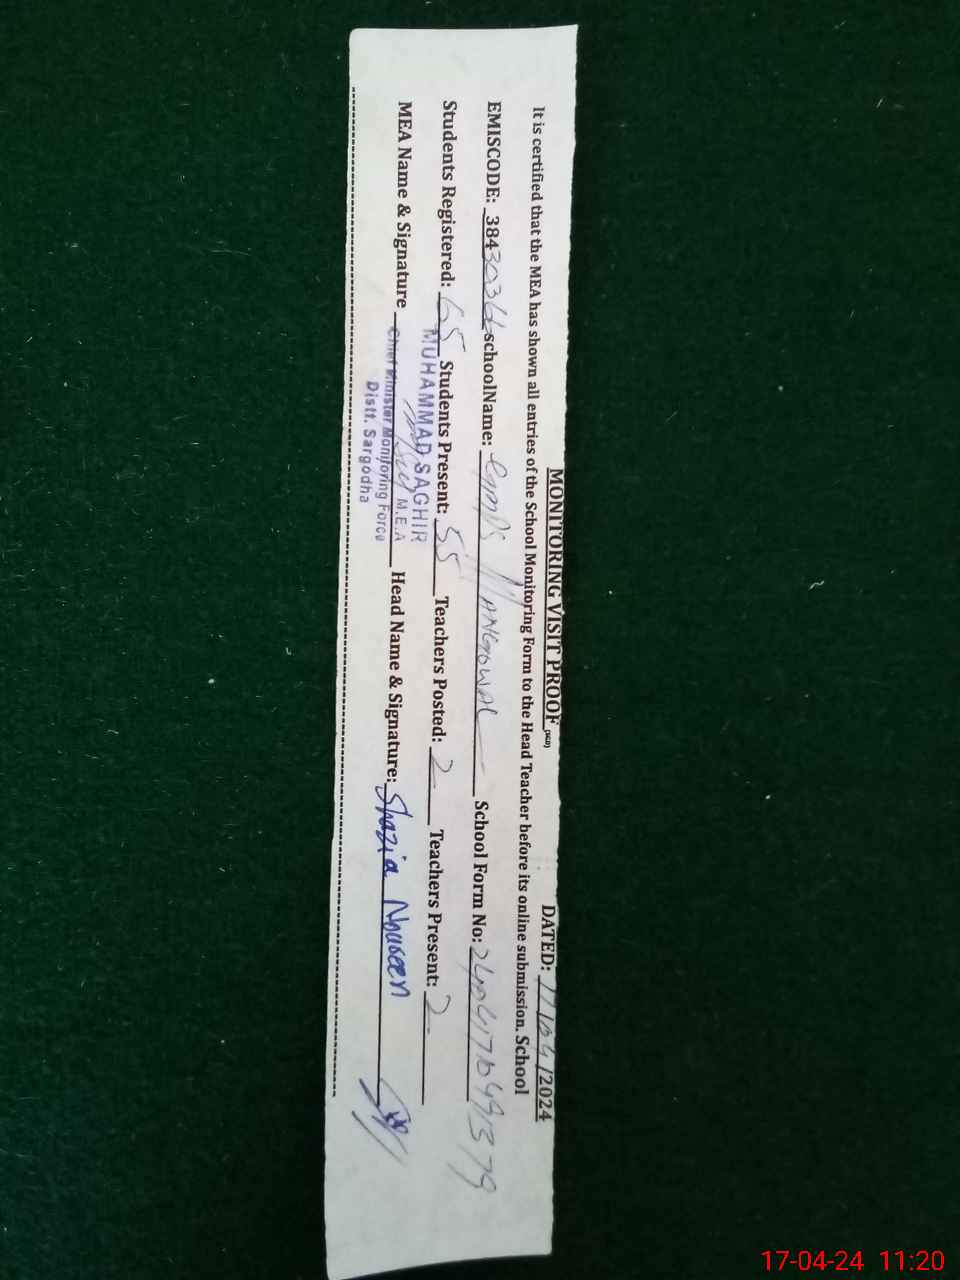 MONITORING VISIT PROOF (SED) DATED: 17/04/2024
It is certified that the MEA has shown all entries of the School Monitoring Form to the Head Teacher before its online submission. School
EMISCODE: 38430366 schoolName: GMPS MANGOWAL School Form No:
Students Registered: 65 Students Present: 55 Teachers Posted: 2 Teachers Present: 2
MEA Name & Signature Head Name & Signature: Shazia Nouseen
MUHAMMAD SAGHIR
M.E.A
Chief Minister Monitoring Force
Distt. Sargodha
17-04-24 11:20